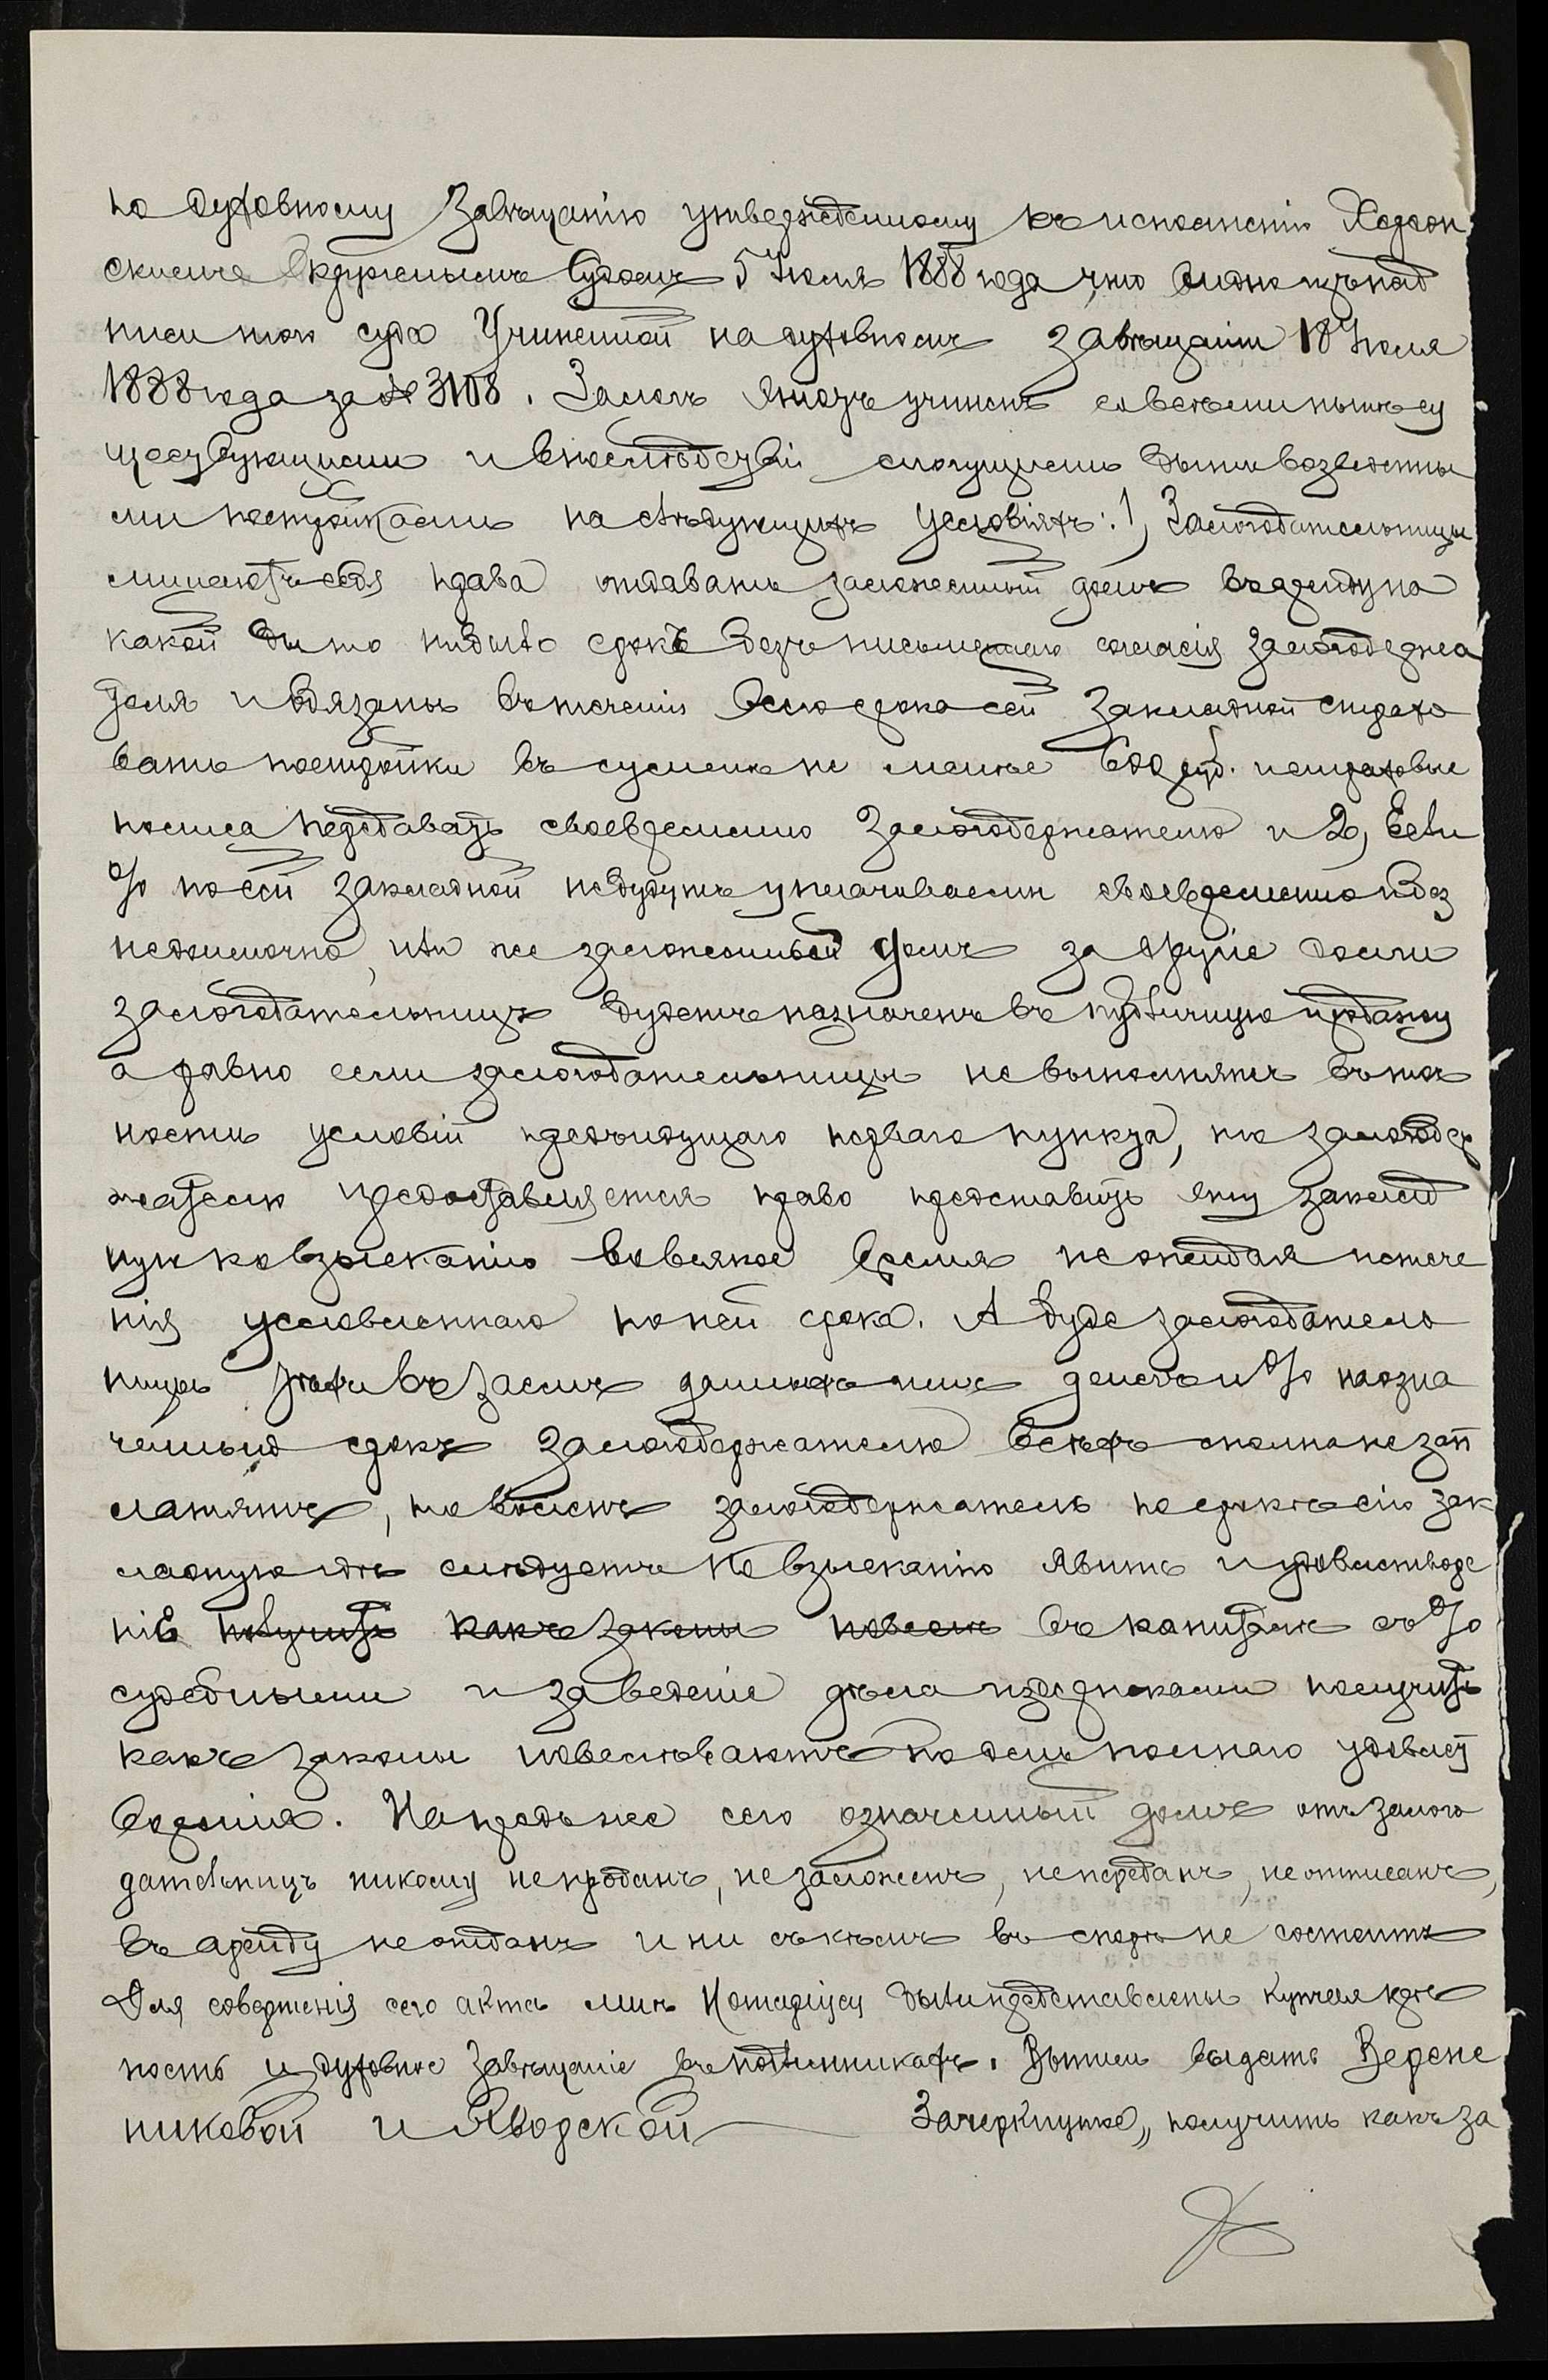 по духовному завѣщанію утвержденному къ исполненію Херсон
скимъ Окружнымъ Судомъ 5 Іюля 1888 года, что видно изъ над
писи того суда учиненной на духовномъ завѣщаніи 18 Іюля
1888 года за № 3108. Залогъ этотъ учиненъ со всѣми нынѣ су
ществующими и впослѣдствіи могущими быть возведенны
ми постройками на слѣдующихъ условіяхъ: 1, Залогодательницы
не имеютъ права отдавать заложенный домъ въ аренду на
какой бы то ни было срокъ безъ письменнаго согласія залогодержа
теля и обязаны въ теченіи всего срока сей закладной страхо
вать постройки въ суммѣ не менѣе руб. и страховые
полиса представать своевременно Залогодержателю и 2, Если
% по сей закладной не будутъ уплачиваемы своевременно и без
недоимочно, или же заложенный домъ за другіе долги
залогодательницъ будетъ назначенъ въ публичную продажу
а равно если залогодательницы не выполнятъ въ точ
ности условій предъидущаго перваго пункта, то залогодер
жателю предоставляется право представить эту заклад
ную ко взысканію во всякое время не ожидая истече
нія условленнаго по ней срока. А буде залогодатель
ницы этихъ въ заемъ данныхъ имъ денегъ и % на озна
ченный срокъ залогодержателю всѣхъ сполна не зап
латятъ, то воленъ залогодержатель по срокѣ сію зак
ладную гдѣ слѣдуетъ ко взысканію явить и удовлетворе
ніе получить какъ законы повел въ капиталѣ съ %
судебными и за веденіе дѣла издержками получить
какъ законы повелѣваютъ по день полнаго удовлет
воренія. Напредь же сего означенный домъ отъ залого
дательницъ никому не проданъ, не заложенъ, не переданъ, не отписанъ,
въ аренду не отданъ и ни съ кѣмъ въ спорѣ не состоитъ
Для совершенія сего акта мнѣ Нотаріусу были представлены купчая крѣ
пость и духовное завѣщаніе въ подлинникахъ. Выписи выдать Верене
никовой и Яворской Зачеркнутое „получить какъ за